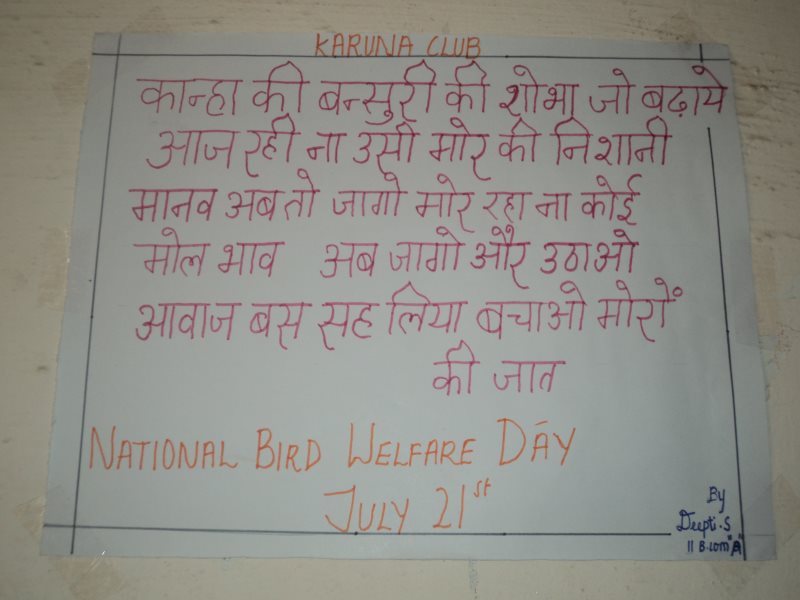 KARUNA CLUB
कान्हा की बन्सुरी की शोभा जो बढ़ाये
आज रही ना उसी मोर की निशानी
मानव अब तो जागो मोर रहा ना कोई
मोल भाव अब जागो और उठाओ
आवाज बस सह लिया बचाओ मोरों
की जात
NATIONAL BIRD WELFARE DAY
JULY 21st
By
Deepti.S
II B.com "A"